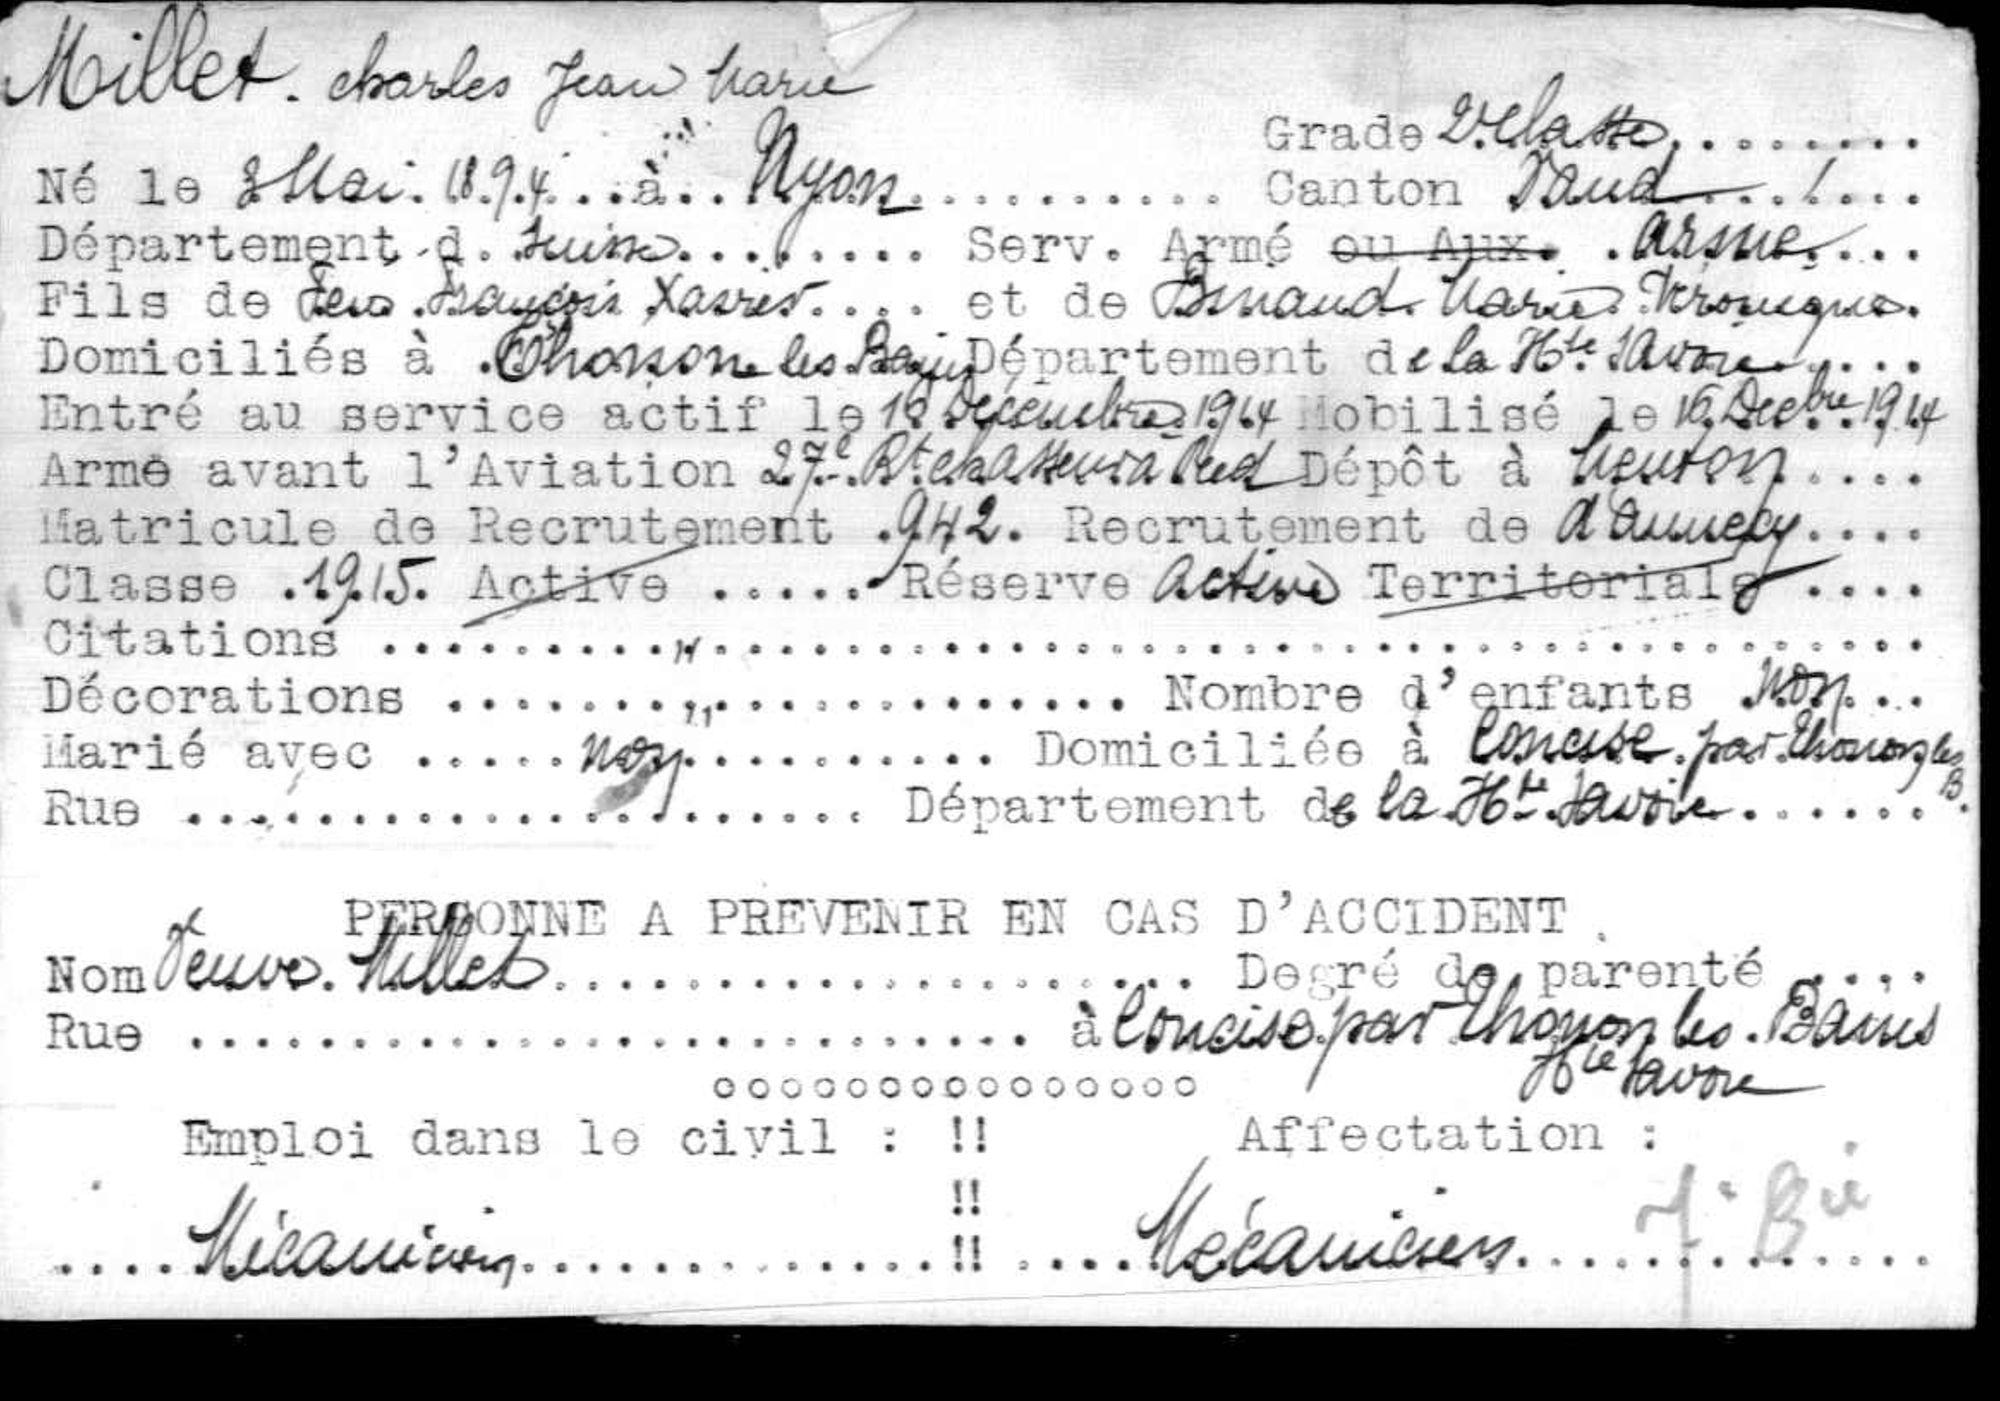 Millet. Charles Jean Marie
Grade 2e classe
Né le 3 Mai 1894 à Nyon Canton Vaud
Département d. Suisse Serv. Armé ou Aux. armé
Fils de feu François Xavier et de Marie Véronique
Domiciliés à Thonon les Bains Département de la Hte Savoie
Entré au service actif le Décembre 1914 Mobilisé le 16 Decbre 1914
Arme avant l'Aviation 27e Bt chasseurs à Pied Dépôt à Menton
Matricule de Recrutement 942. Recrutement de d'Annecy
Classe 1915. Active Réserve Active Territoriale
Citations "
Décorations " Nombre d'enfants non
Marié avec non Domiciliée à Concise par Thonon les B.
Rue Département de la Hte Savoie
PERSONNE A PREVENIR EN CAS D'ACCIDENT
Nom Veuve Millet Degré de parenté
Rue à Concise par Thonon les Bains
Hte Savoie
oooooooooooooooo
Emploi dans le civil : !! Affectation :
!!
Mécanicien !! Mécanicien